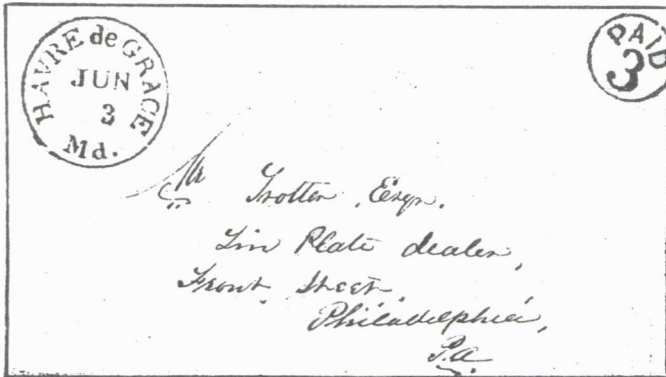 HAVRE de GRACE
JUN
3
Md.
PAID
3
Mr Trotter Esqr.
Tin Plate dealer,
Front Street
Philadelphia,
Pa